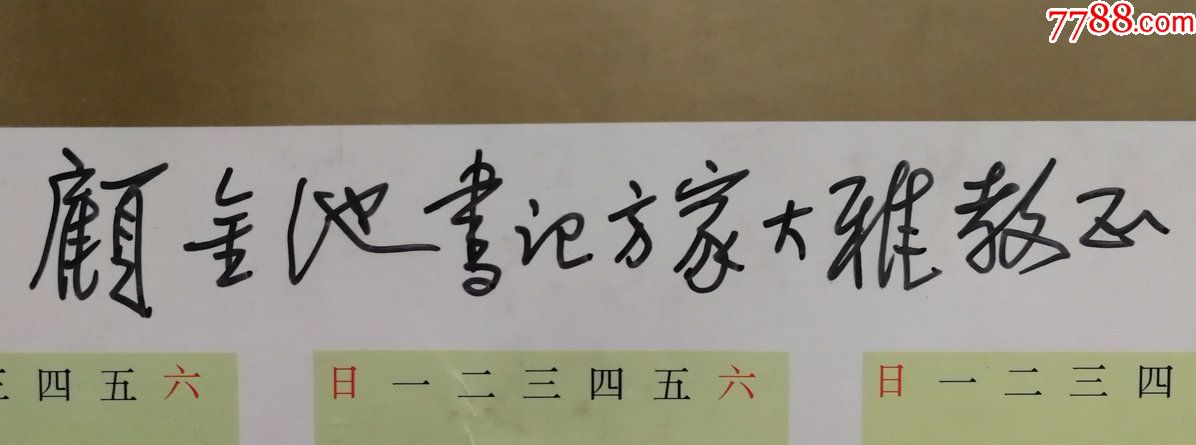 7788.com
顧金池書记方家大雅教正
三四五六 日一二三四五六 日一二三四